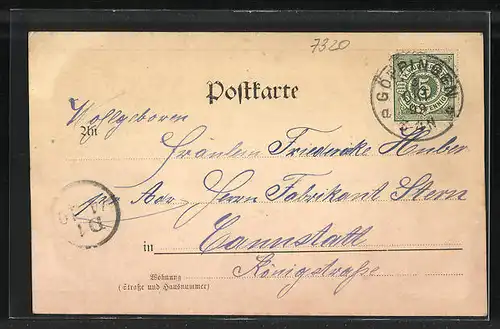 7320
GÖPPINGEN
5
Postkarte
Wollgeboren
An
Fräulein Friedericke Huber
per Adr. Herrn Fabrikant Stern
in Cannstatt
Königstraße
Wohnung
(Straße und Hausnummer)